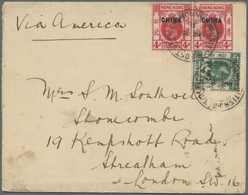 HONG KONG HONG KONG
CHINA CHINA
4c 4c
Via America
CHINA
Mrs S. M. Southwell
Stonecombe
19 Kempshott Road
Streatham
London S.W. 16